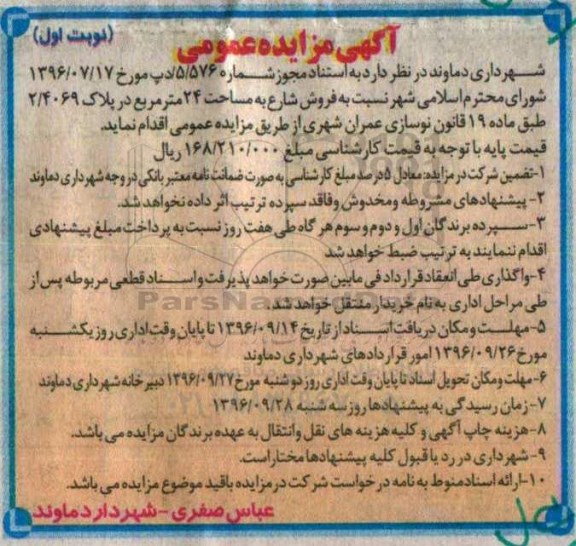 (نوبت اول)
آگهی مزایده عمومی
شهرداری دماوند در نظر دارد به استناد مجوز شماره ۵/۵۷۶/دپ مورخ ۱۳۹۶/۰۷/۱۷
شورای محترم اسلامی شهر نسبت به فروش شارع به مساحت ۲۴ متر مربع در پلاک ۲/۴۰۶۹
طبق ماده ۱۹ قانون نوسازی عمران شهری از طریق مزایده عمومی اقدام نماید.
قیمت پایه با توجه به قیمت کارشناسی مبلغ ۱۶۸/۲۱۰/۰۰۰ ریال
۱-تضمین شرکت در مزایده: معادل ۵ درصد مبلغ کارشناسی به صورت ضمانت نامه معتبر بانکی در وجه شهرداری دماوند
۲- پیشنهادهای مشروطه و مخدوش و فاقد سپرده ترتیب اثر داده نخواهد شد.
۳-سپرده برندگان اول و دوم و سوم هر گاه طی هفت روز نسبت به پرداخت مبلغ پیشنهادی
اقدام ننمایند به ترتیب ضبط خواهد شد
۴-واگذاری طی انعقاد قرارداد فی مابین صورت خواهد پذیرفت و اسناد قطعی مربوطه پس از
طی مراحل اداری به نام خریدار منتقل خواهد شد.
۵-مهلت و مکان دریافت اسناد از تاریخ ۱۳۹۶/۰۹/۱۴ تا پایان وقت اداری روز یکشنبه
مورخ ۱۳۹۶/۰۹/۲۶ امور قراردادهای شهرداری دماوند
۶-مهلت ومکان تحویل اسناد تا پایان وقت اداری روز دوشنبه مورخ ۱۳۹۶/۰۹/۲۷ دبیرخانه شهرداری دماوند
۷-زمان رسیدگی به پیشنهادها روز سه شنبه ۱۳۹۶/۰۹/۲۸
۸-هزینه چاپ آگهی و کلیه هزینه های نقل وانتقال به عهده برندگان مزایده می باشد.
۹-شهرداری در رد یا قبول کلیه پیشنهادها مختار است.
۱۰-ارائه اسناد منوط به نامه درخواست شرکت در مزایده باقید موضوع مزایده می باشد.
عباس صفری -شهردار دماوند